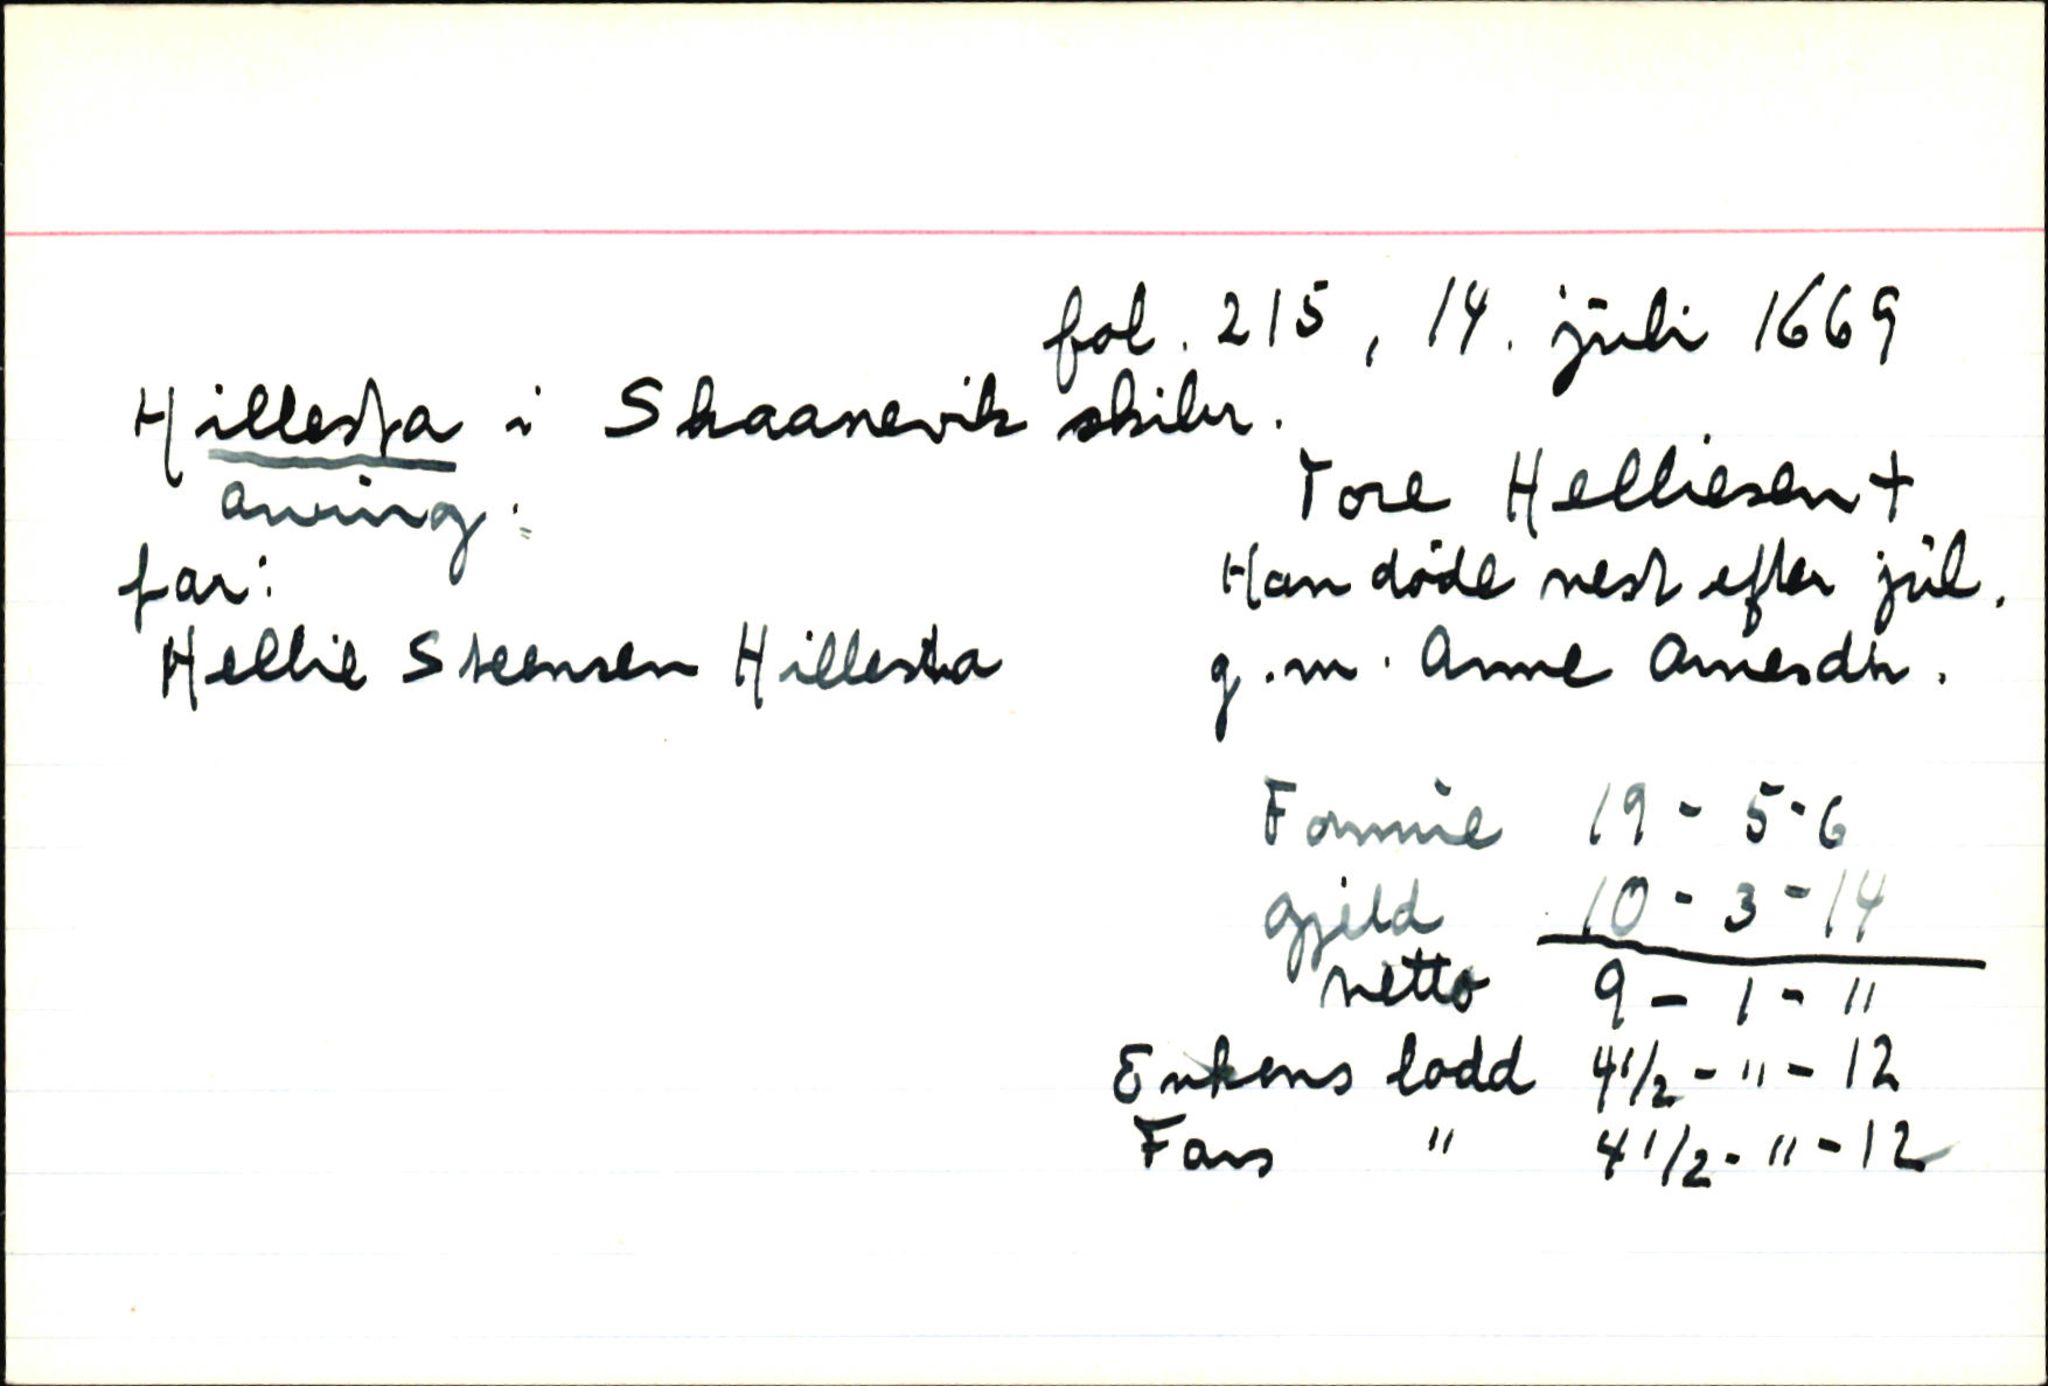 fol. 215, 14. juli 1669
Hillesta i Skaanevik skibr.
Tore Helliesen +
arving:
Han døde nest efter jul.
far:
Hellie Steensen Hillesta
g.m. Anne Arnesdtr.
Formue 19 - 5 - 6
gjeld 10 - 3 - 14
netto 9 - 1 - "
Enkens lodd 4 1/2 - " - 12
Fars " 4 1/2 - " - 12